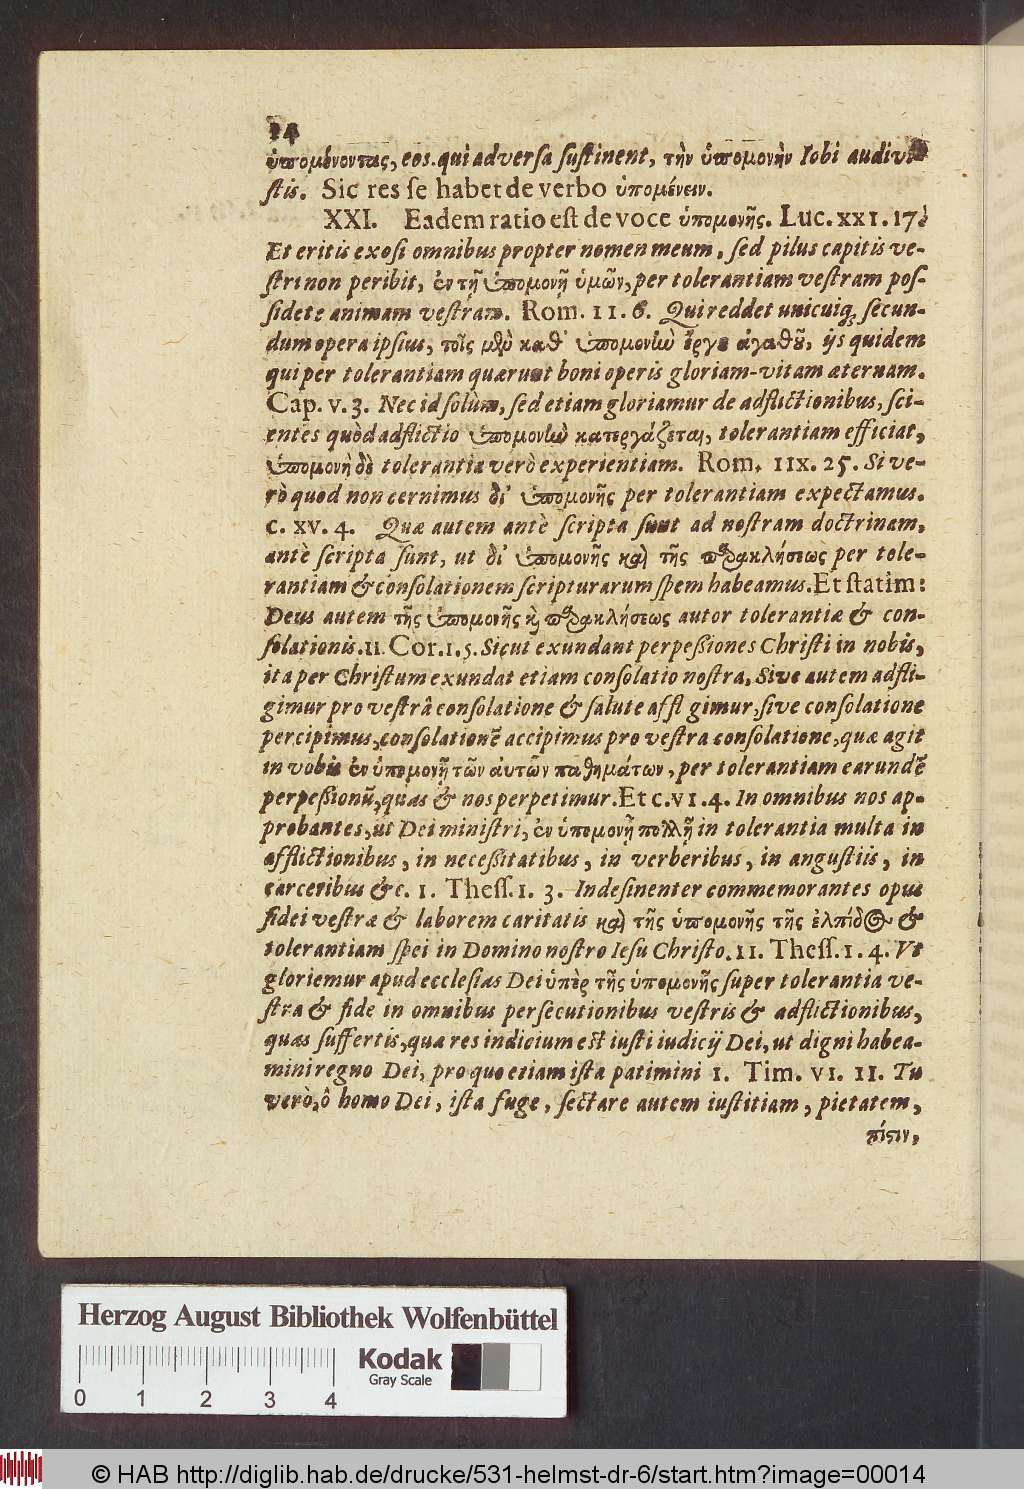 14
ὑπομένοντας, eos qui adversa ſuſtinent, τὴν ὑπομονὴν Iobi audivi
ſtis. Sic res ſe habet de verbo ὑπομένειν.
XXI. Eadem ratio eſt de voce ὑπομονῆς. Luc. xxi. 17:
Et eritis exoſi omnibus propter nomen meum, ſed pilus capitis ve-
ſtri non peribit, ἐν τῇ ὑπομονῇ ὑμῶν, per tolerantiam veſtram poſ-
ſidete animam veſtram. Rom. 11. 6. Qui reddet unicuiq; ſecun-
dum opera ipſius, τοῖς μὲν καθ᾽ ὑπομονὴν ἔργȣ ἀγαθȣ͂, ijs quidem
qui per tolerantiam quærunt boni operis gloriam-vitam æternam.
Cap. v. 3. Nec id ſolùm, ſed etiam gloriamur de adflictionibus, ſci-
entes quòd adflictio ὑπομονὴν κατεργάζεται, tolerantiam efficiat,
ὑπομονὴ δὲ tolerantia verò experientiam. Rom. 11x. 25. Si ve-
rò quod non cernimus δι᾽ ὑπομονῆς per tolerantiam expectamus.
c. xv. 4. Quæ autem antè ſcripta ſunt ad noſtram doctrinam,
antè ſcripta ſunt, ut δι᾽ ὑπομονῆς καὶ τῆς παρακλήσεως per tole-
rantiam & conſolationem ſcripturarum ſpem habeamus. Et ſtatim:
Deus autem τῆς ὑπομονῆς κ̀ παρακλήσεως autor tolerantiæ & con-
ſolationis. 11. Cor. 1. 5. Sicut exundant perpeßiones Chriſti in nobis,
ita per Chriſtum exundat etiam conſolatio noſtra, Sive autem adfli-
gimur pro veſtrâ conſolatione & ſalute affl gimur, ſive conſolatione
percipimus, conſolationẽ accipimus pro veſtra conſolatione, quæ agit
in vobis ἐν ὑπομονῇ τῶν αὐτῶν παθημάτων, per tolerantiam earundẽ
perpeßionũ, quas & nos perpetimur. Et c. v1. 4. In omnibus nos ap-
probantes, ut Dei miniſtri, ἐν ὑπομονῇ πολλῇ in tolerantia multa in
afflictionibus, in neceßitatibus, in verberibus, in anguſtiis, in
carceribus &c. 1. Theſſ. 1. 3. Indeſinenter commemorantes opus
fidei veſtræ & laborem caritatis καὶ τῆς ὑπομονῆς τῆς ἐλπίδος &
tolerantiam ſpei in Domino noſtro Ieſu Chriſto. 11. Theſſ. 1. 4. Vt
gloriemur apud eccleſias Dei ὑπὲρ τῆς ὑπομονῆς ſuper tolerantia ve-
ſtra & fide in omnibus perſecutionibus veſtris & adflictionibus,
quas ſuffertis, qua res indicium eſt iuſti iudicij Dei, ut digni habea-
mini regno Dei, pro quo etiam iſta patimini 1. Tim. v1. 11. Tu
verò, ô homo Dei, iſta fuge, ſectare autem iuſtitiam, pietatem,
πίϛιν,
Herzog August Bibliothek Wolfenbüttel
Kodak
Gray Scale
0 1 2 3 4
© HAB http://diglib.hab.de/drucke/531-helmst-dr-6/start.htm?image=00014